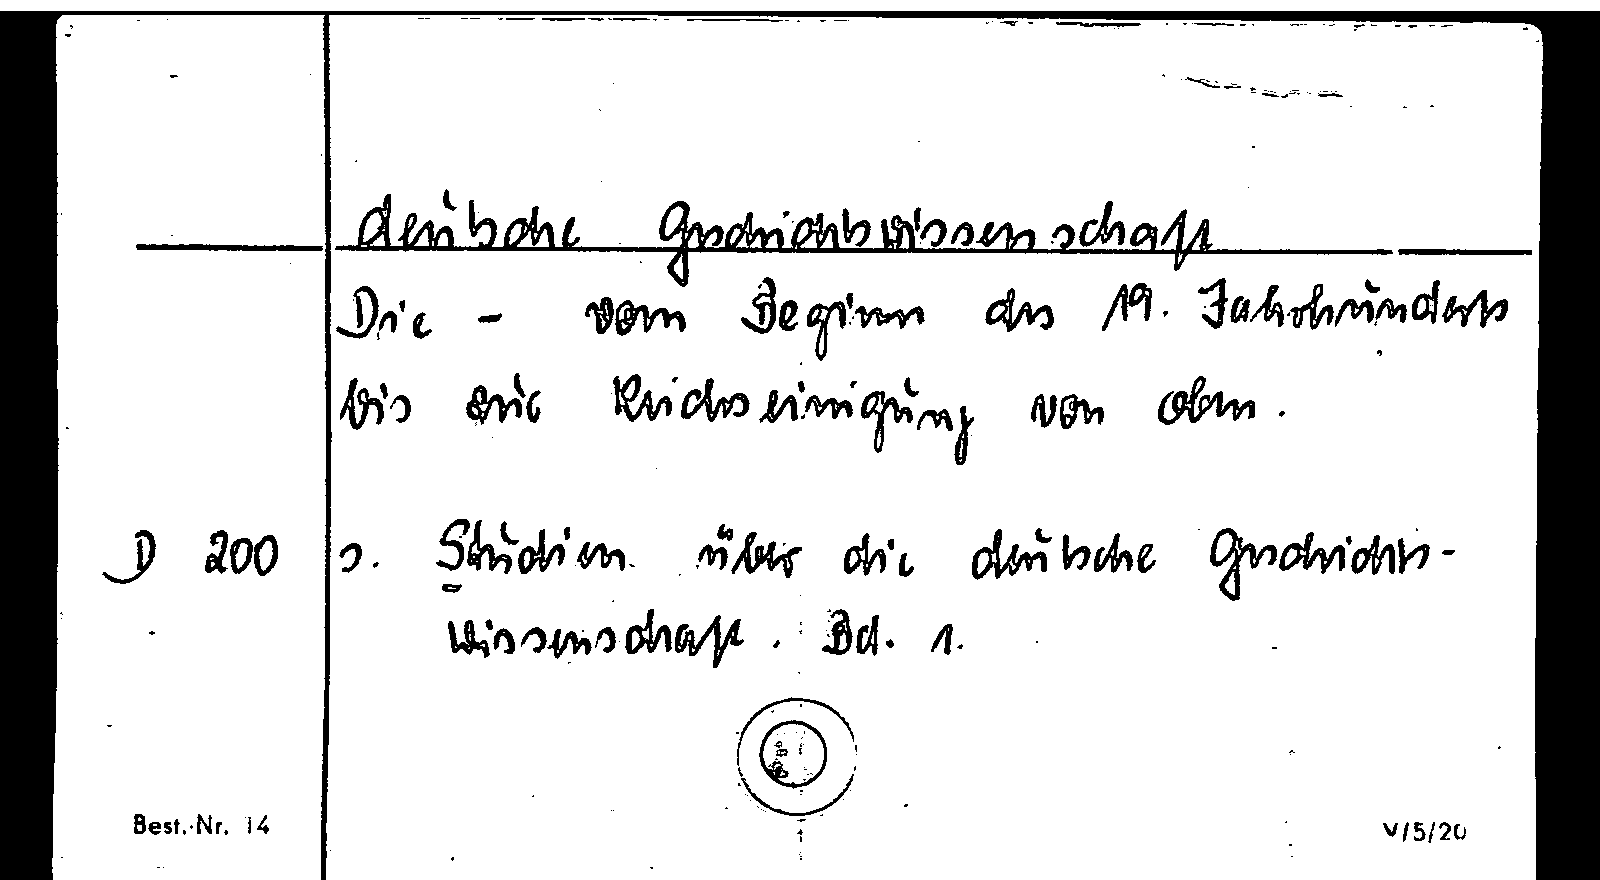 deutsche Geschichtswissenschaft
Die - vom Beginn des 19. Jahrhunderts
bis zur Reichseinigung von oben.
D 200 s. Studien über die deutsche Geschichts-
wissenschaft. Bd. 1.
Best.-Nr. 14
V/5/20